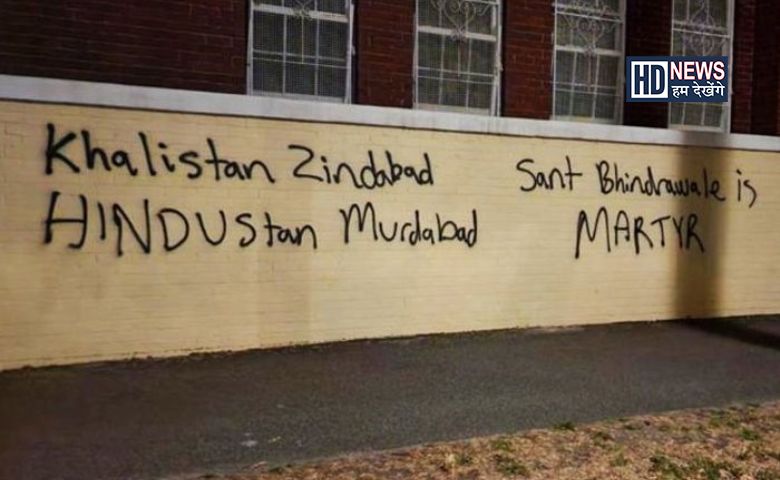 HD NEWS
हम देखेंगे
Khalistan Zindabad
HINDUStan Murdabad
Sant Bhindrawale is
MARTYR